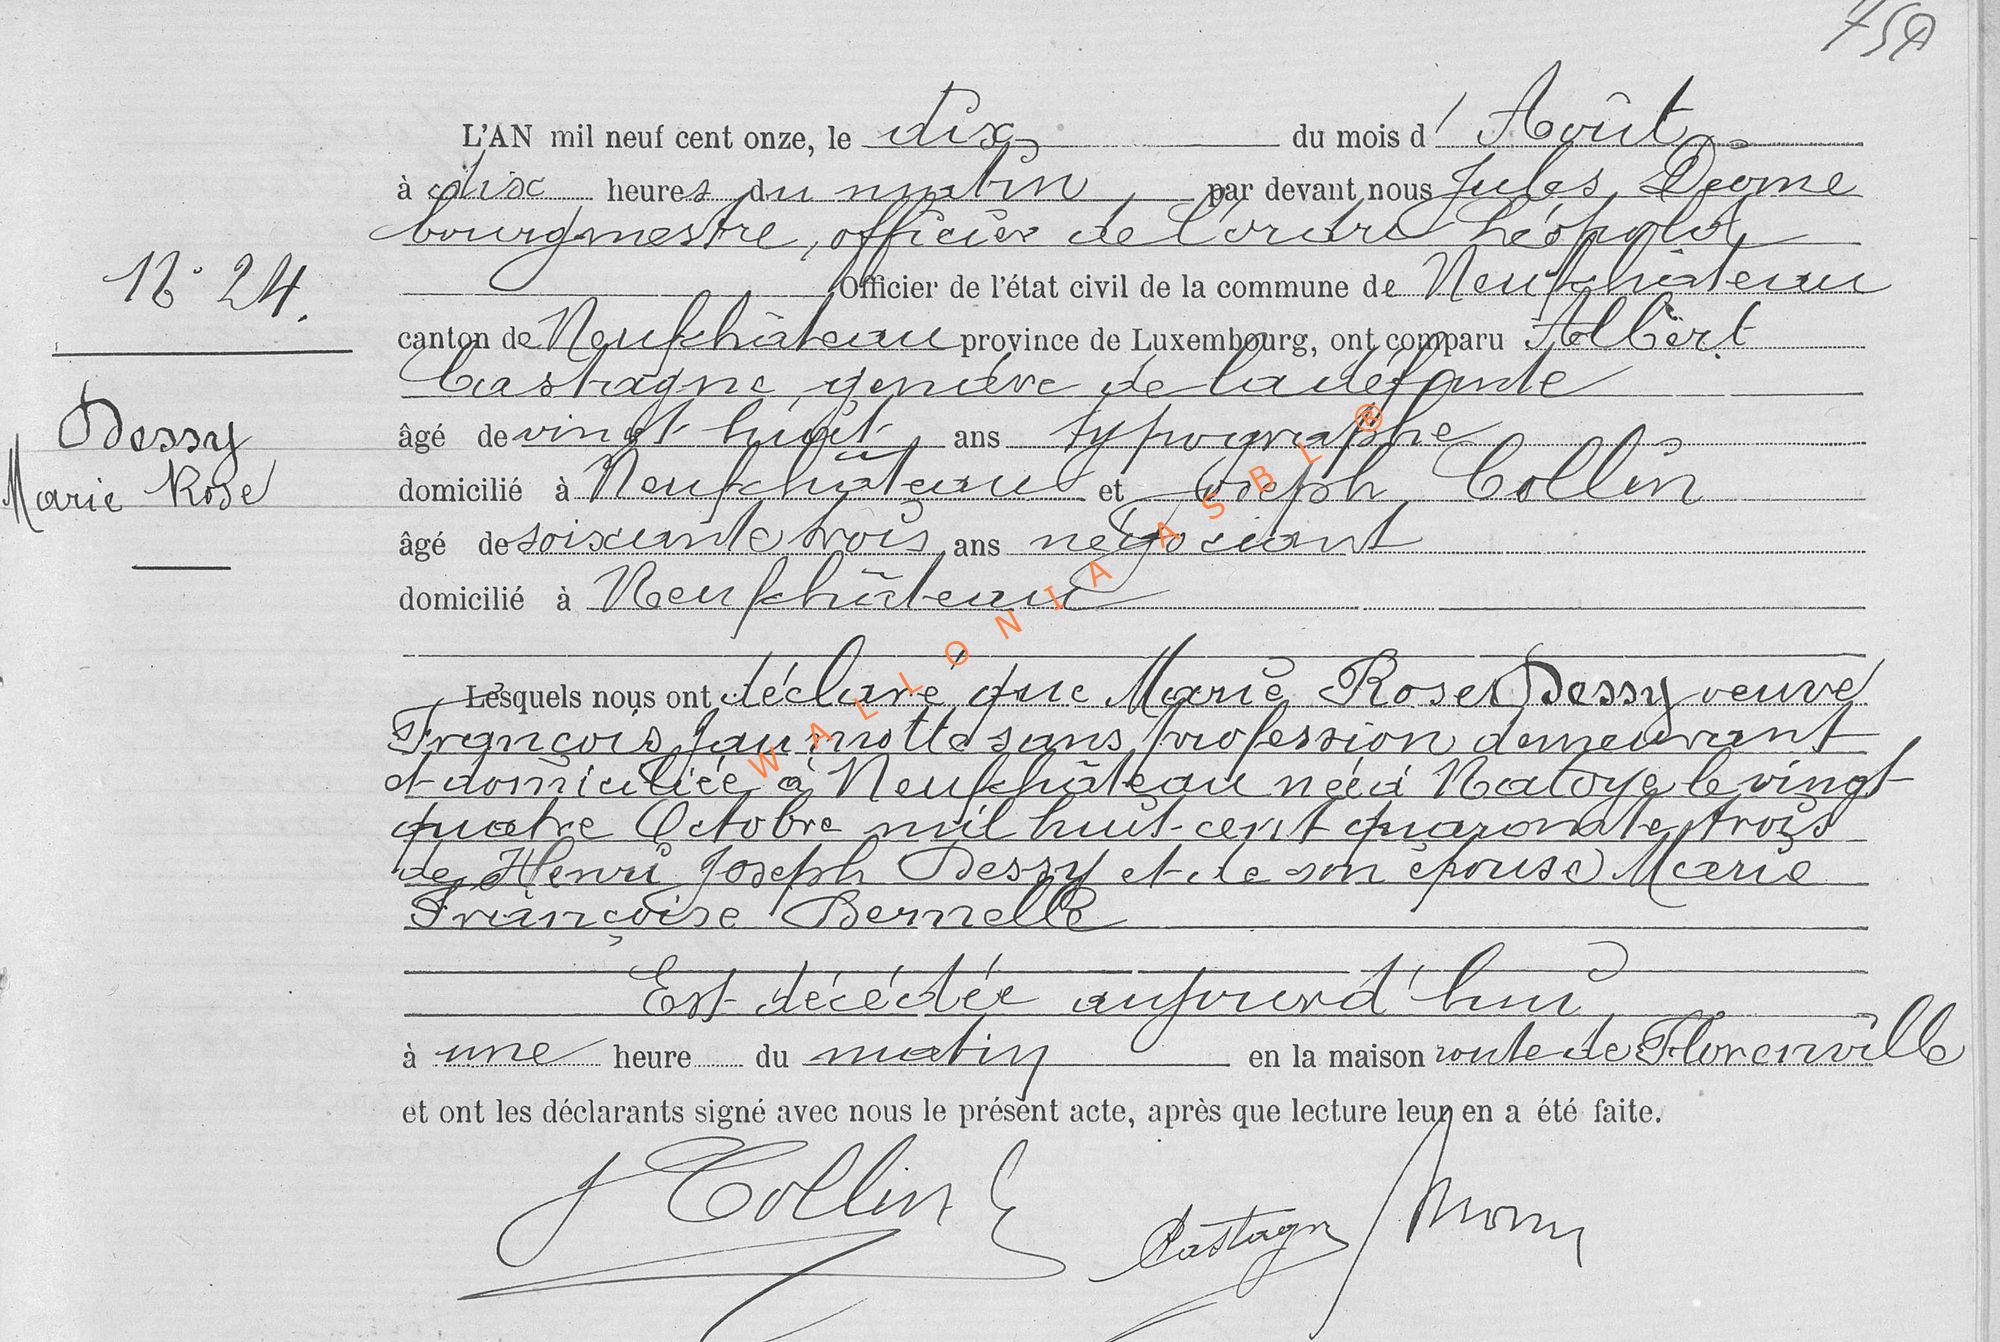 L'AN mil neuf cent onze, le dix du mois d' Août
à dix heures du matin par devant nous Jules
bourgmestre, officier de l'ordre Léopold
Officier de l'état civil de la commune de Neufchâteau
N° 24.
canton de Neufchâteau province de Luxembourg, ont comparu Albert
Castagne, gendre de la défunte
Dessy
Marie Rose
âgé de vingt huit ans typographe
domicilié à Neufchâteau et Joseph Collin
âgé de soixante trois ans négociant
domicilié à Neufchâteau
Lesquels nous ont déclaré que Marie Rose Dessy veuve
François Jaumotte sans profession demeurant
et domiciliée à Neufchâteau née à Natoye le vingt
quatre Octobre mil huit-cent quarante trois
de Henri Joseph Dessy et de son épouse Marie
Françoise Bernelle
Est décédée aujourd'hui
à une heure du matin en la maison route de Florenville
et ont les déclarants signé avec nous le présent acte, après que lecture leur en a été faite.
J Collin Castagne
WALLONIA ASBL ®